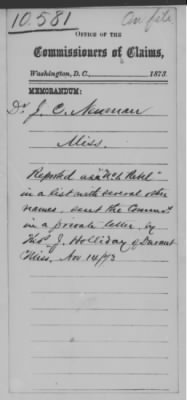 10.581
On file
OFFICE OF THE
Commissioners of Claims,
Washington, D.C., 1873
MEMORANDUM:
Dr J. C. Newman
Miss.
Reported as a "Rebel"
in a list with several other
names, sent the Commrs.
in a private letter, by
Thos. J. Holliday of Durant
Miss. Nov 14/73